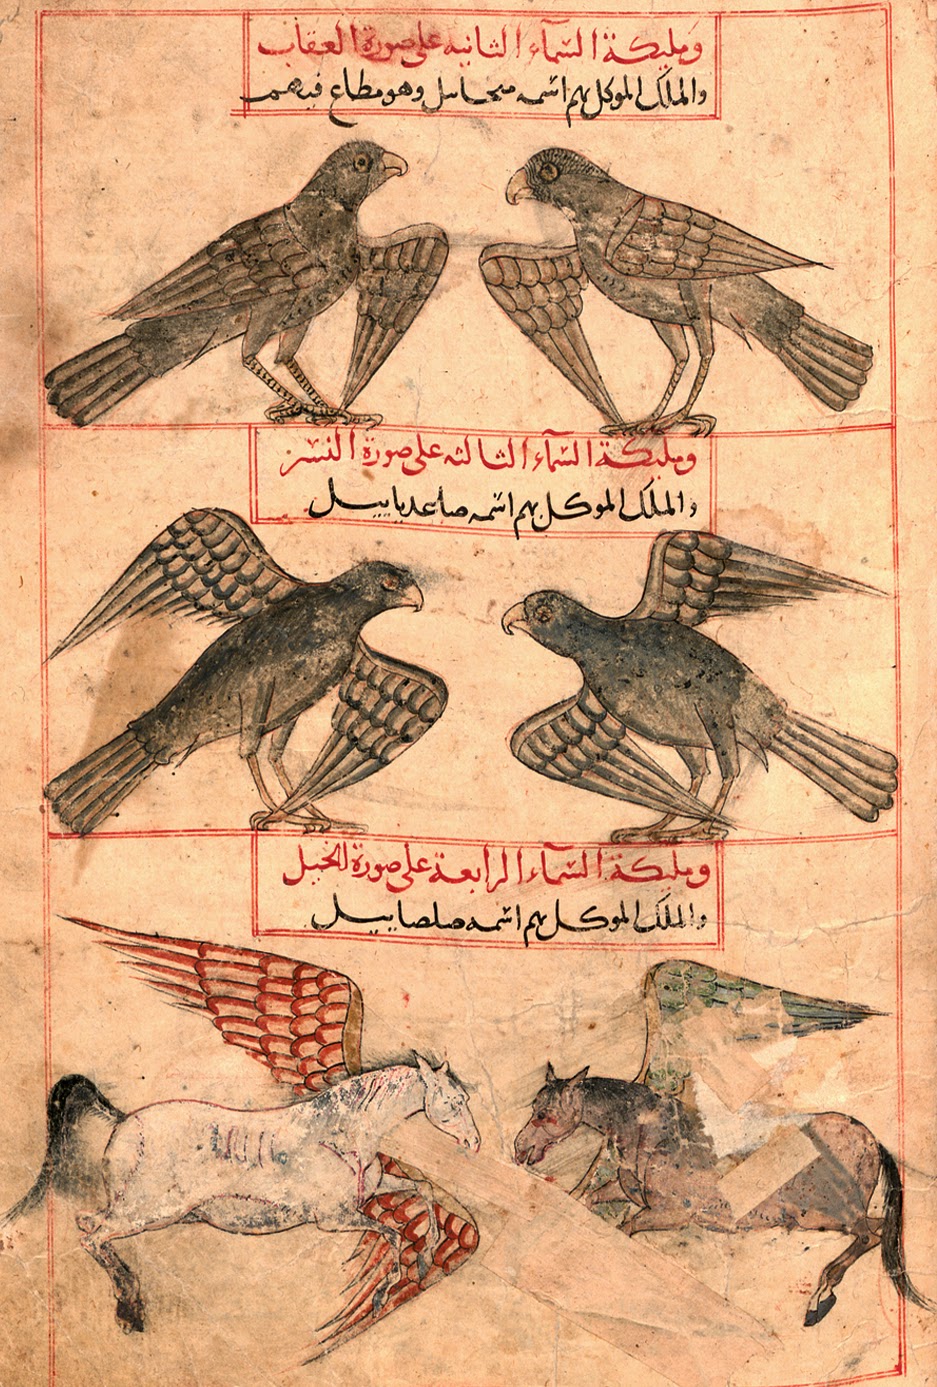 ومليكة السماء الثانيه على صورة العقاب
والملك الموكل بهم اسمه ميخاييل وهو مطاع فيهم
ومليكة السمآء الثالثه على صورة النسر
والملك الموكل بهم اسمه صاعدياييل
ومليكة السمآء الرابعة على صورة الخيل
والملك الموكل بهم اسمه صلصاييل